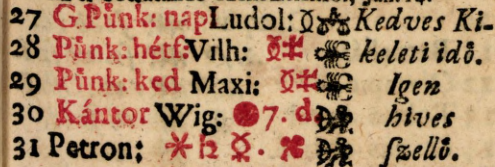 27 G. Pünk: nap Ludol: Kedves Ki-
28 Pünk: hétf: Vilh: keleti idő.
29 Pünk: ked Maxi: Igen
30 Kántor Wig: 7. d. hives
31 Petron: ſzellő.